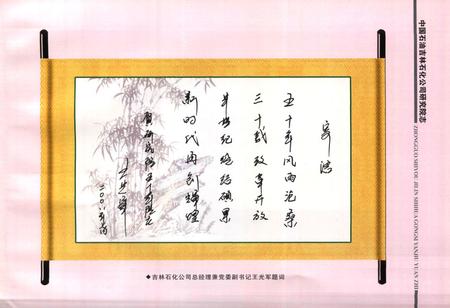 中国石油吉林石化公司研究院志
ZHONGGUO SHIYOU JILIN SHIHUA GONGSI YANJIU YUAN ZHI
寄语
五十年风雨沧桑
三十载改革开放
半世纪结硕果
新时代再创辉煌
贺研究院五十
王光军
二〇〇八年
◆吉林石化公司总经理兼党委副书记王光军题词